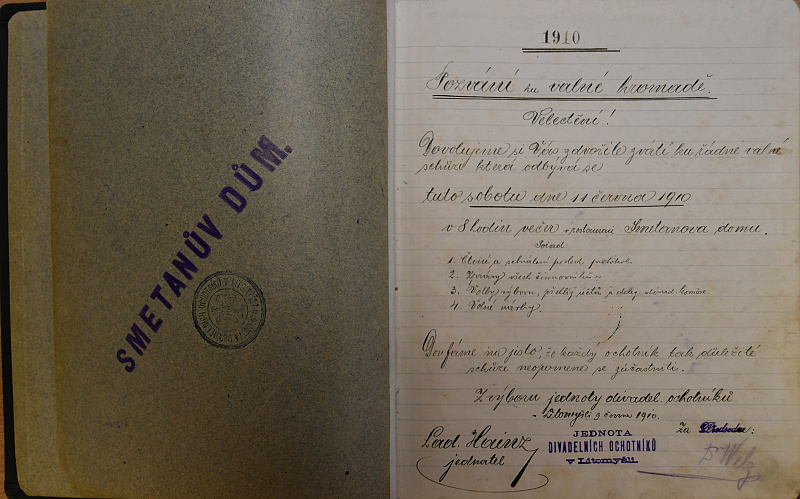 SMETANŮV DŮM.
1910
Pozvání ku valné hromadě.
Velectění!
Dovolujeme si Vás zdvořile zváti ku řádné valné
schůzi která odbývá se
tuto sobotu dne 11 června 1910
v 8 hodin večer v restauraci Smetanova domu.
Pořad:
1. Čtení a schválení posled. protokolu
2. Zprávy všech činovníků
3. Volby výboru, přehlíž. účtů a deleg. divad. komise.
4. Volné návrhy.
Doufáme na jisto, že každý ochotník tak důležité
schůze neopomene se súčastniti.
Z výboru jednoty divadel. ochotníků
v Litomyšli 9 června 1910.
Lad. Hainz
jednatel
JEDNOTA
DIVADELNÍCH OCHOTNÍKŮ
v Litomyšli
Za Předsedu: